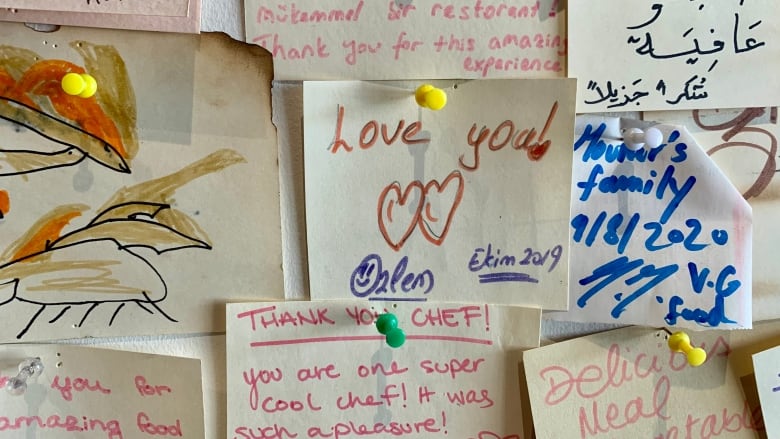 mükemmel bir restorant.
Thank you for this amazing
experience
عَافِيَة
شُكْرًا جَزِيلًا
Love you!
Özlem
Ekim 2019
family
9/8/2020
V.G
food
THANK YOU CHEF!
you are one super
cool chef! It was
such a pleasure!
you for
amazing food
Delicious
Meal